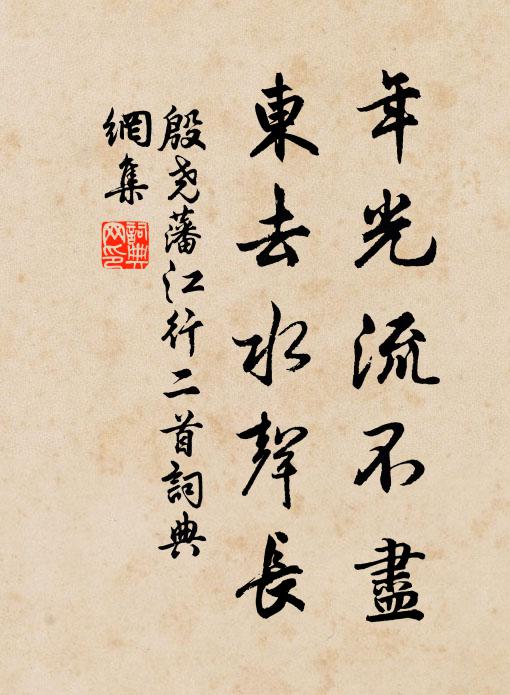 年光流不盡
東去水聲長
殷尧藩江行二首詞典
網集
詞典
网印